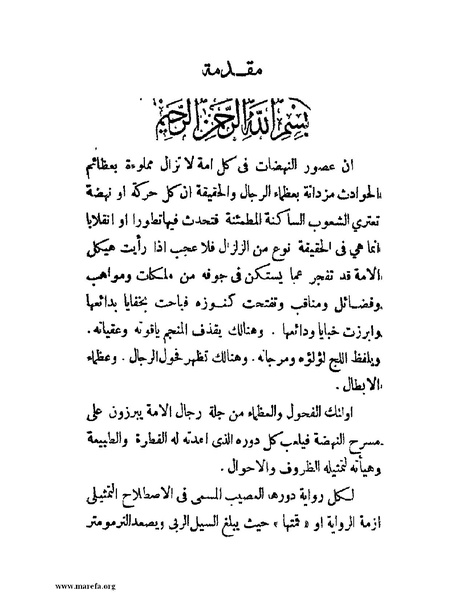 مقدمة
بسم الله الرحمن الرحيم
ان عصور النهضات فى كل امة لا تزال مملوءة بعظائم
الحوادث مزدانة بعظماء الرجال والحقيقة ان كل حركة او نهضة
تعترى الشعوب الساكنة المطمئنة فتحدث فيها تطورا او انقلابا
انما هى فى الحقيقة نوع من الزلازل فلا عجب اذا رأيت هيكل
الامة قد تفجر عما يستكن فى جوفه من ملكات ومواهب
وفضائل ومناقب وتفتحت كنوزه فباحت بخفايا بدائعها
وابرزت خبايا ودائعها . وهنالك يقذف المنجم ياقوته وعقيانه .
ويلفظ اللج لؤلؤه ومرجانه . وهنالك تظهر فحول الرجال . وعظماء
الابطال .
اولئك الفحول والعظماء من جلة رجال الامة يبرزون على
مسرح النهضة فيلعب كل دوره الذى اعدته له الفطرة والطبيعة
وهيأته لتمثيله الظروف والاحوال .
لكل رواية دورها العصيب المسمى فى الاصطلاح التمثيلى
ازمة الرواية او « قمتها » حيث يبلغ السيل الربى ويصعد الترمومتر
www.marefa.org